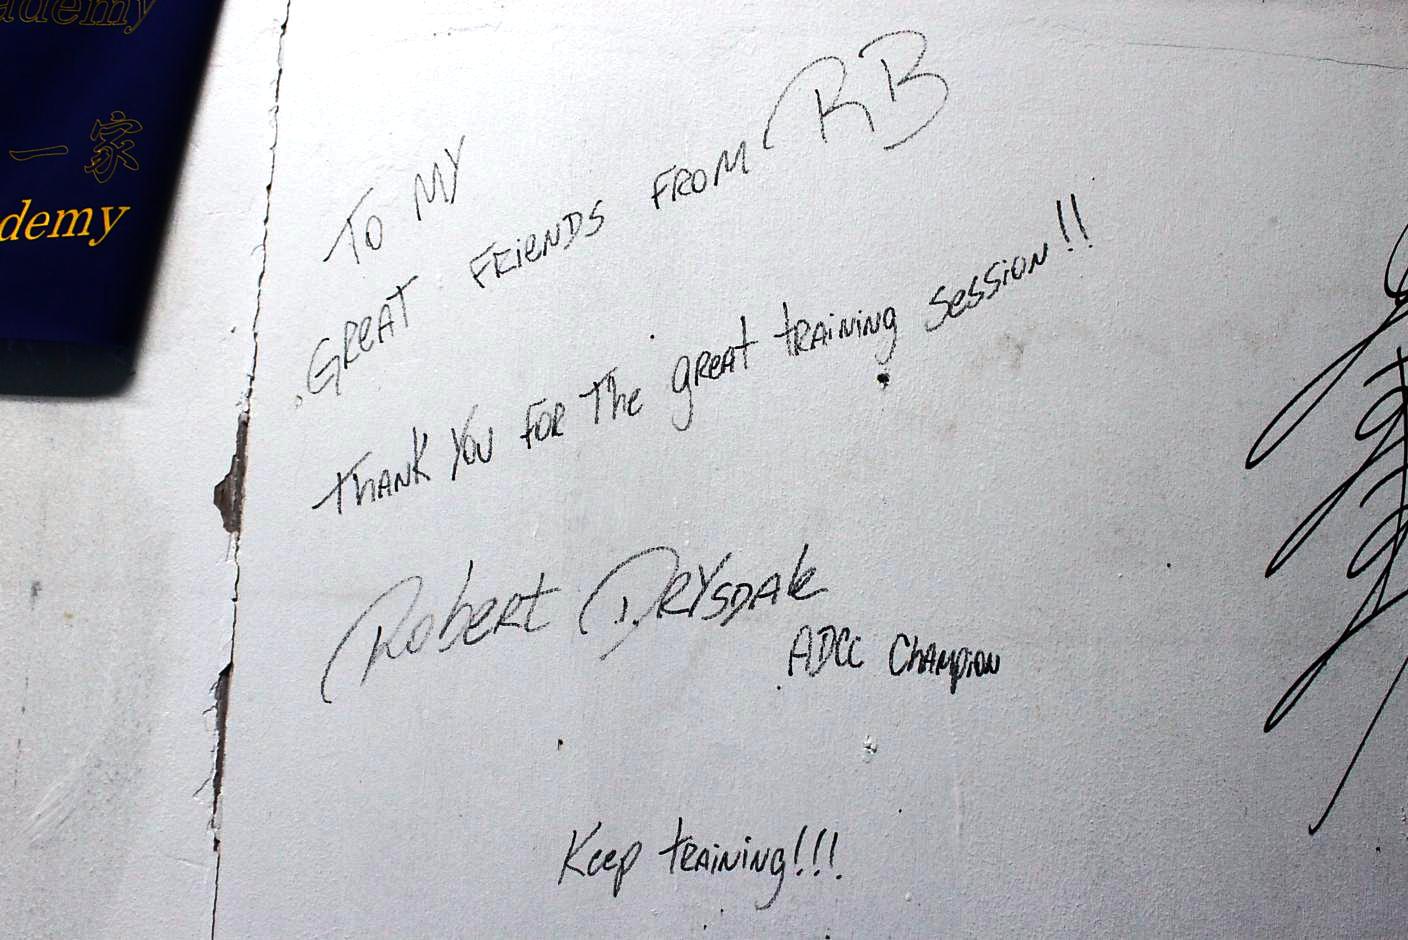 ademy
一家
demy
TO MY
GREAT FRIENDS FROM RB
THANK YOU FOR The great training session!!
Robert DRYSDALE
ADCC Champion
Keep training!!!